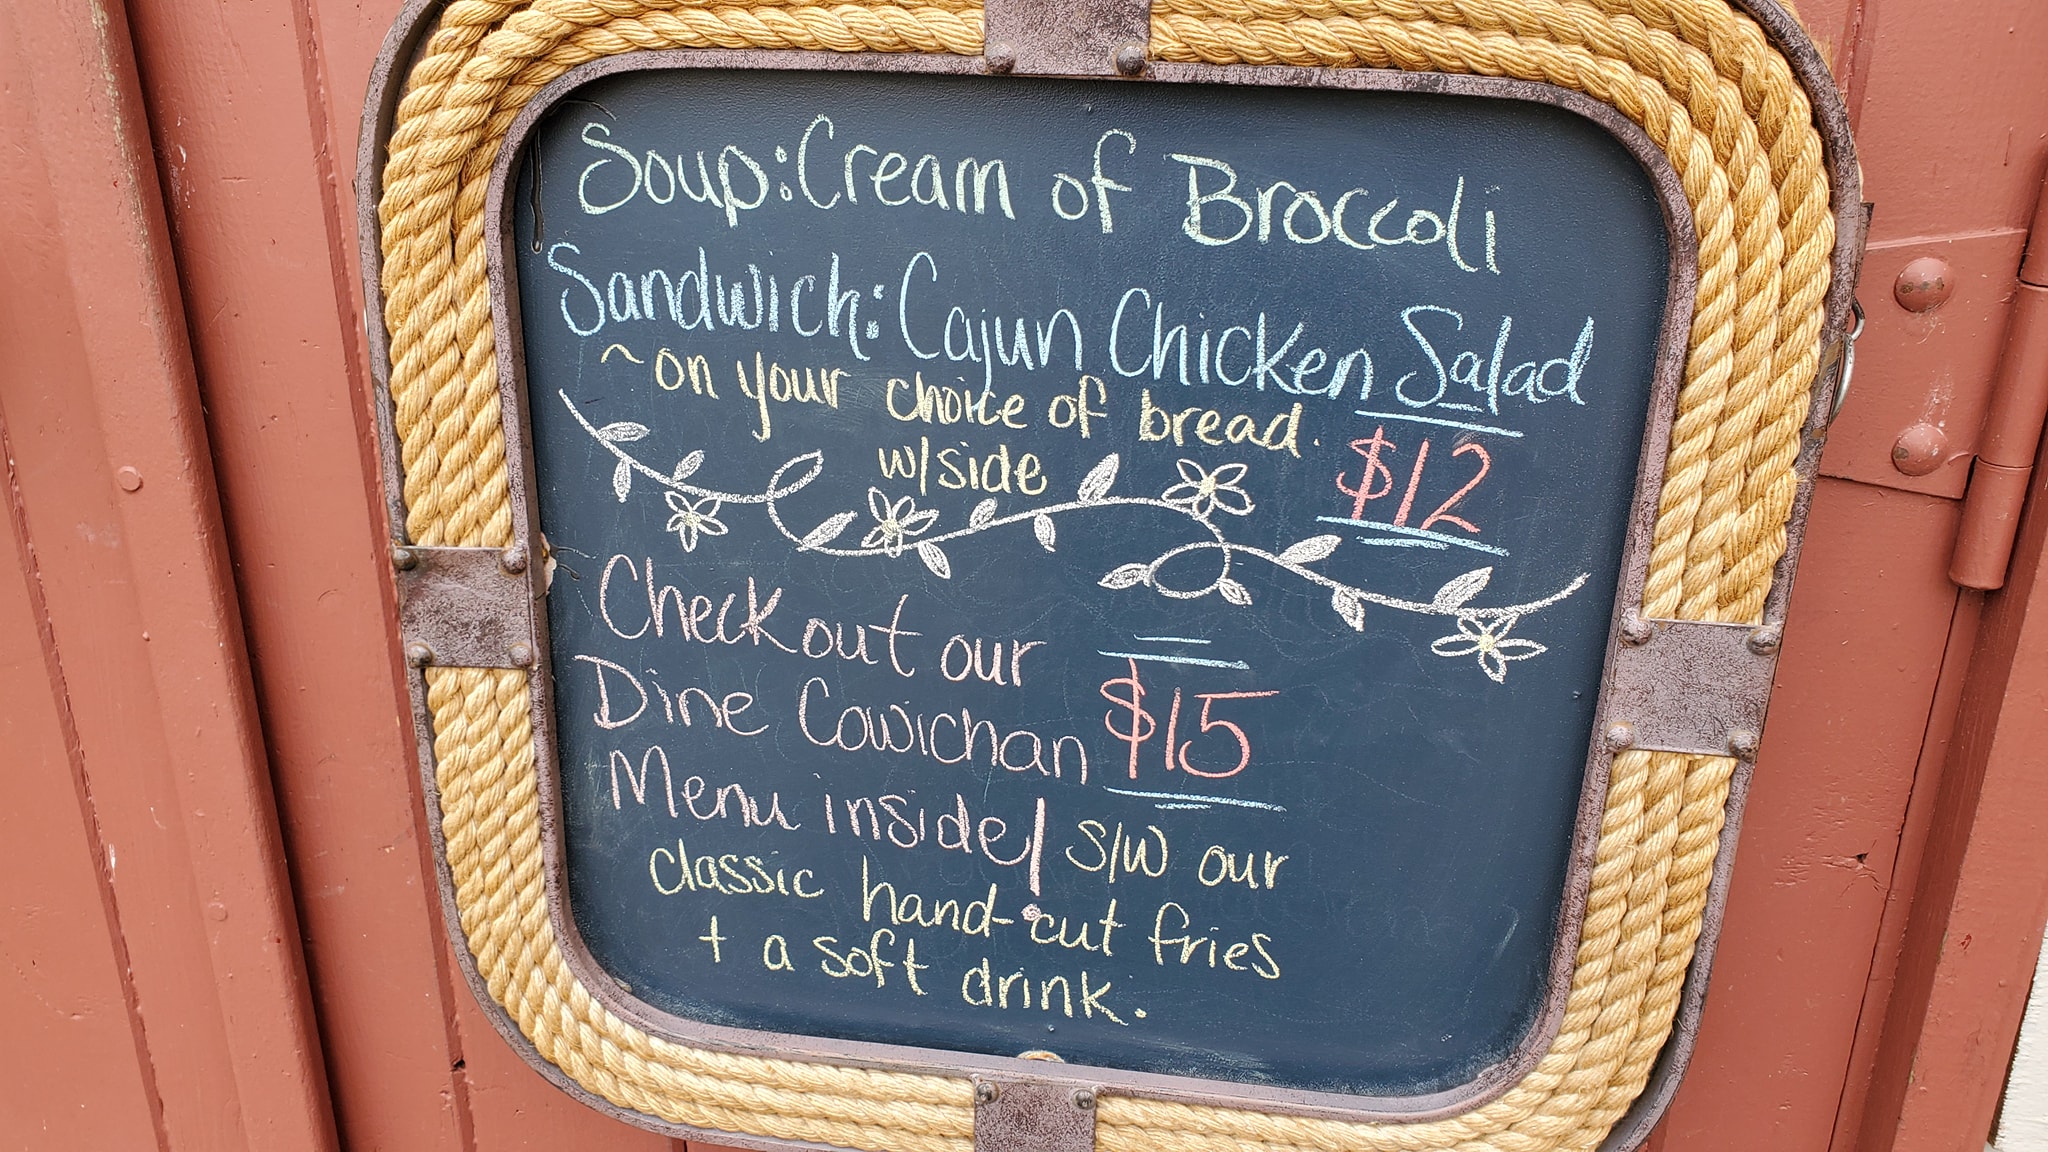 Soup: Cream of Broccoli
Sandwich: Cajun Chicken Salad
~on your choice of bread.
w/side
$12
Checkout our
Dine Cowichan
$15
Menu inside!
s/w our
classic hand-cut fries
+ a soft drink.